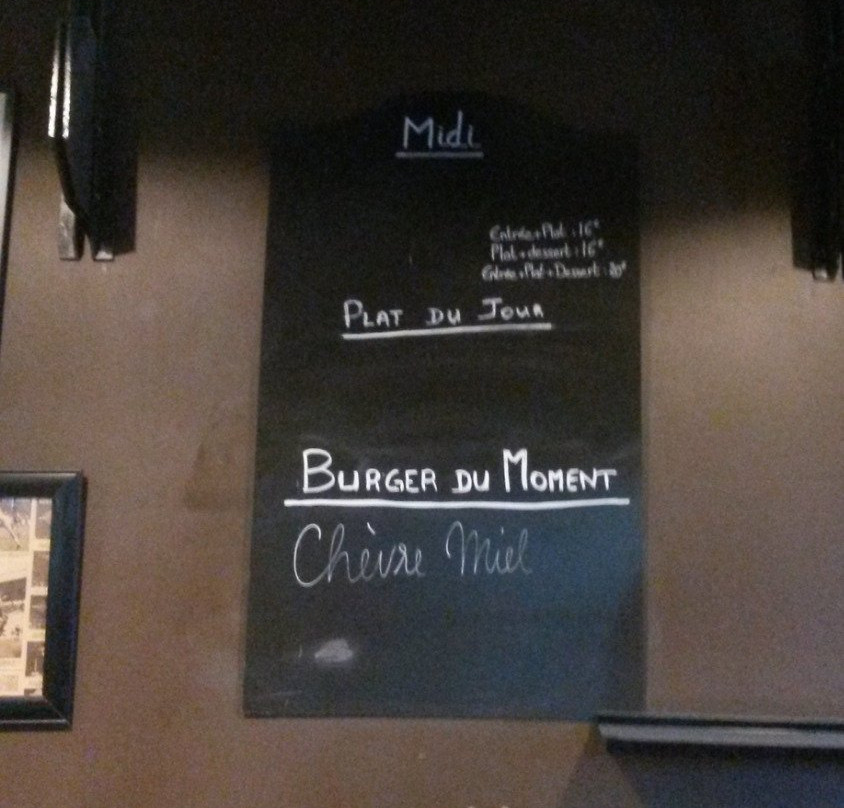 Midi
Entrée+Plat : 16€
Plat+dessert : 16€
Entrée+Plat+Dessert : 20€
PLAT DU JOUR
BURGER DU MOMENT
Chèvre Miel